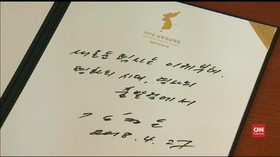 2018 남북정상회담
새로운 력사는 이제부터.
평화의 시대, 력사의
출발점에서
김정은
2018. 4. 27
CNN